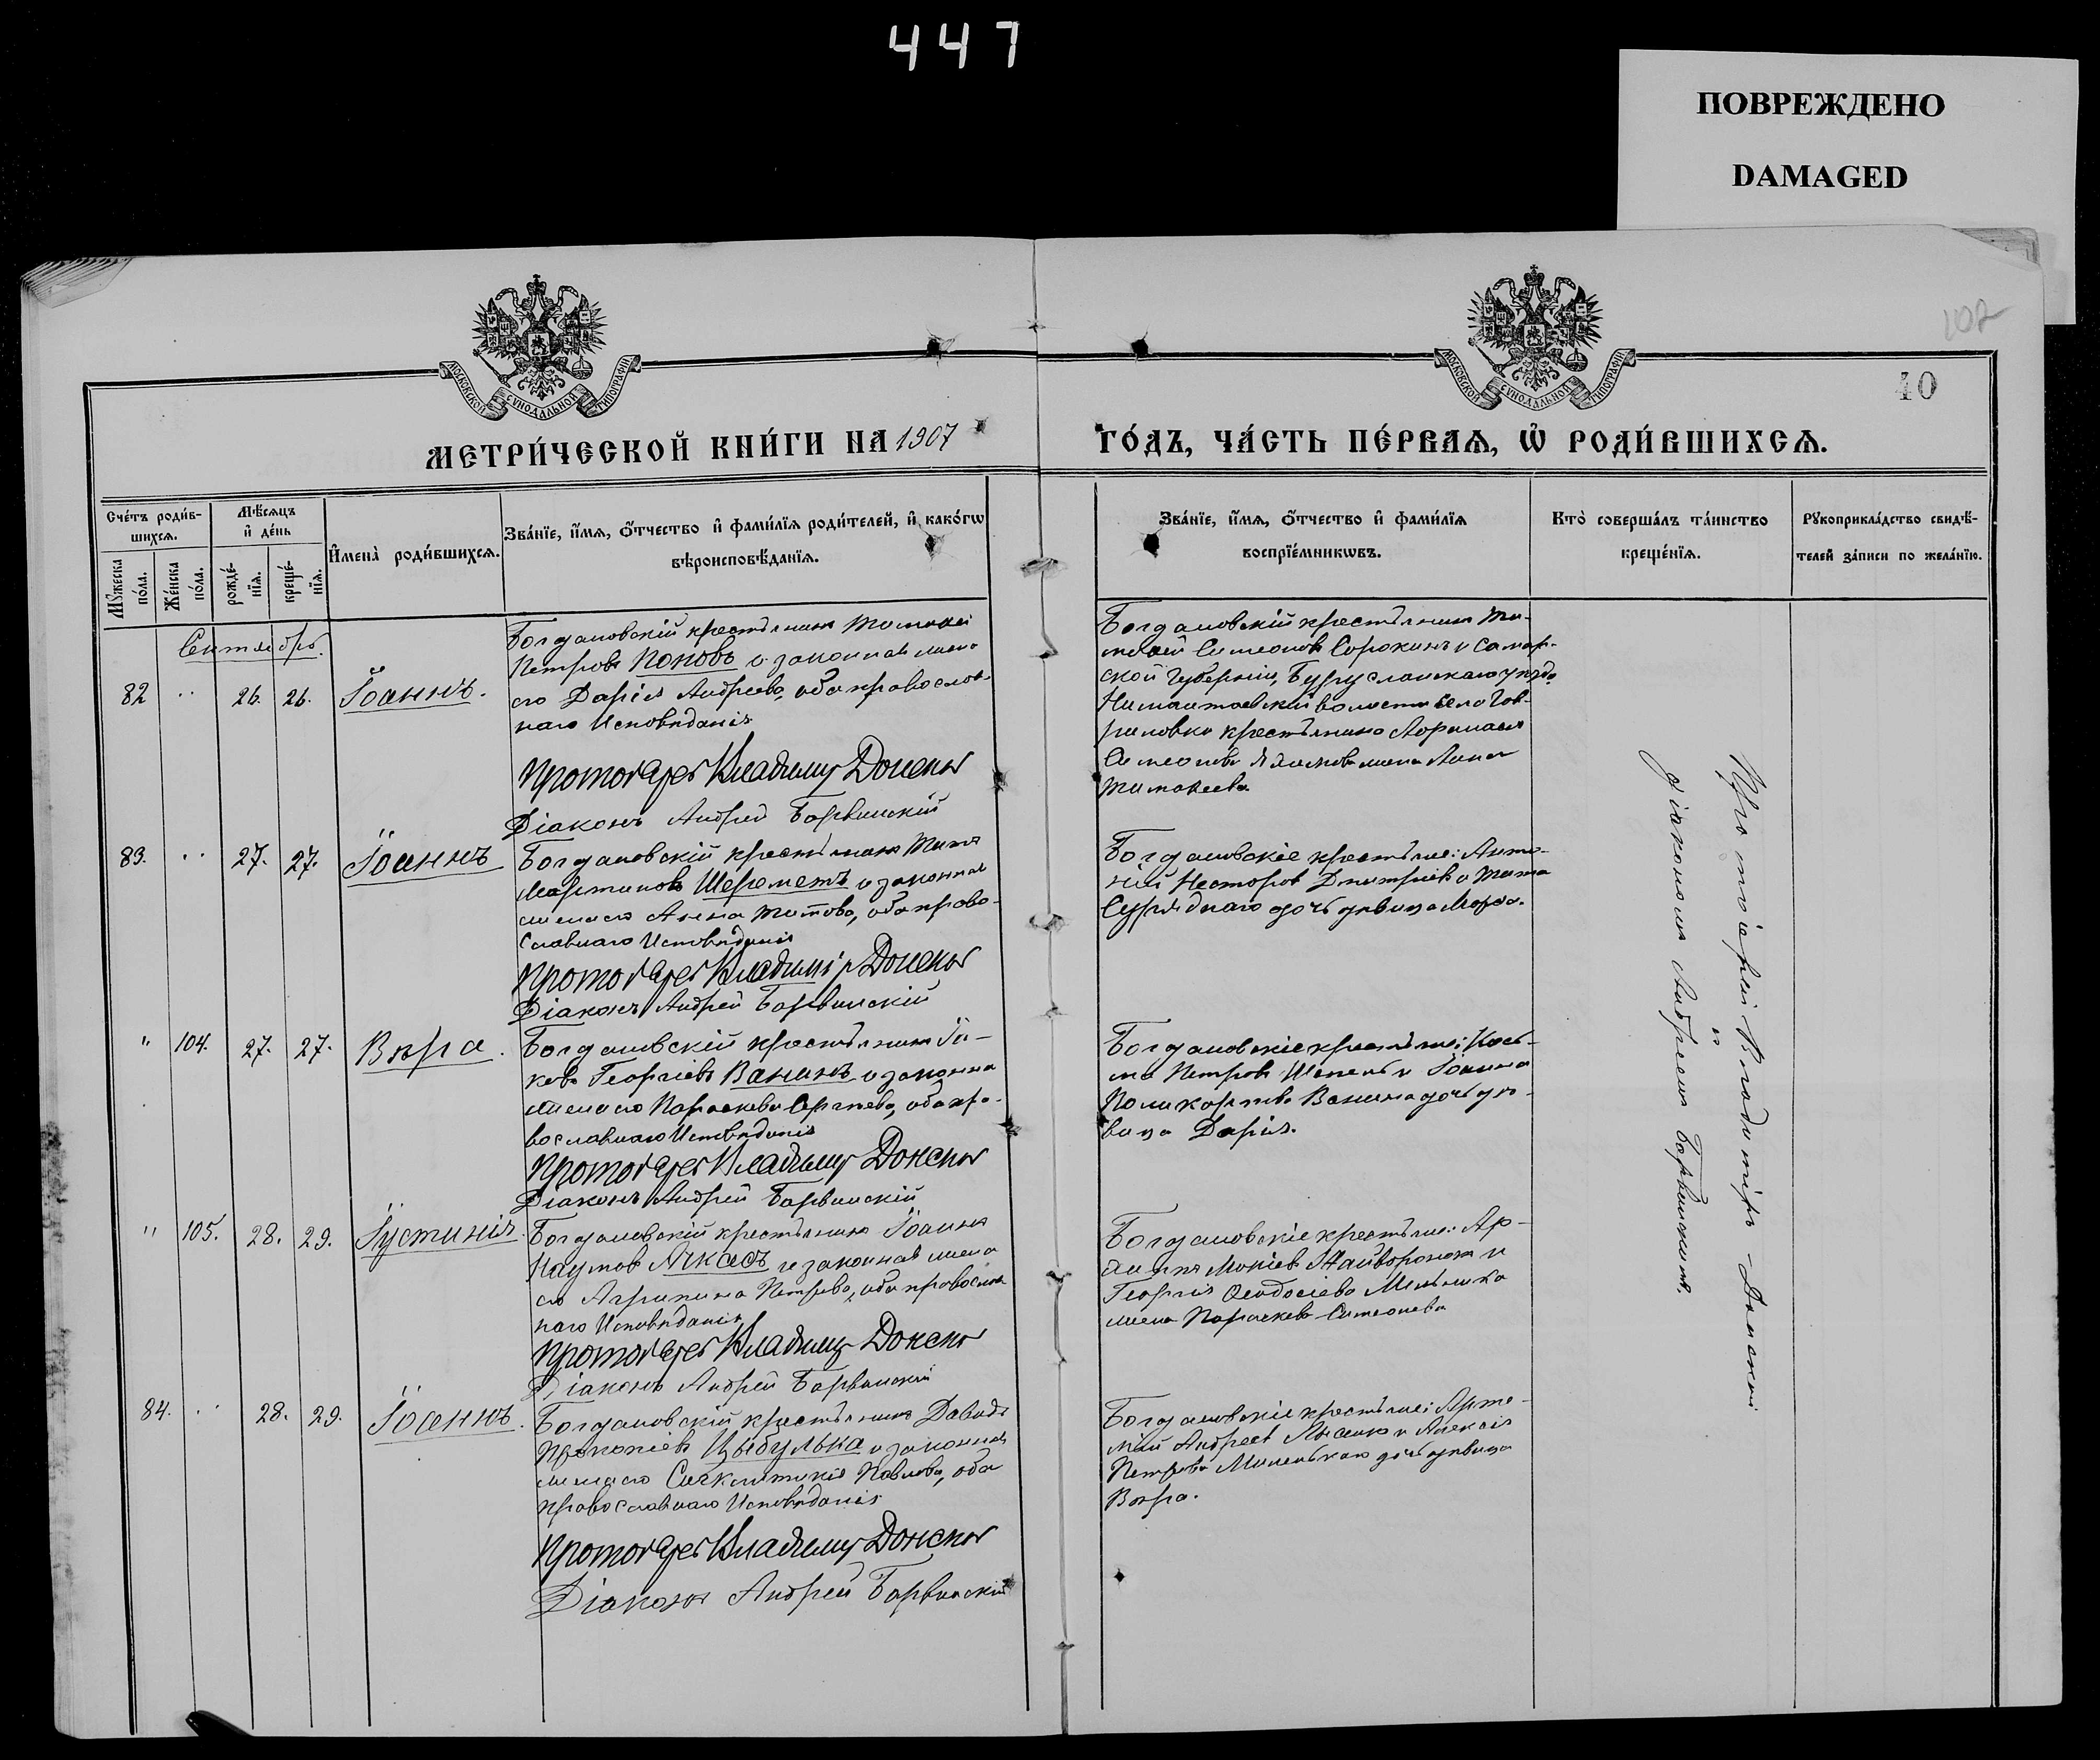 447
ПОВРЕЖДЕНО
DAMAGED
102
40
МОСКОВСКОЙ СѴНОДАЛЬНОЙ ТИПОГРАФІИ
МОСКОВСКОЙ СѴНОДАЛЬНОЙ ТИПОГРАФІИ
МЕТРИ́ЧЕСКОЙ КНИ́ГИ НА 1907
ГО́ДЪ, ЧА́СТЬ ПЕ́РВАЯ, Ѡ РОДИ́ВШИХСЯ.
Сче́тъ роди́в-
шихся.
Мꙋ́жеска
по́ла.
Же́нска
по́ла.
Мѣ́сяцъ
и҆ де́нь
рожде́-
нїя.
креще́-
нїя.
И҆мена̀ роди́вшихся.
Зва́нїе, и҆́мя, ѻ҆́тчество и҆ фами́лїя роди́телей, и҆ како́гѡ
вѣроисповѣ́данїя.
Зва́нїе, и҆́мя, ѻ҆́тчество и҆ фами́лїя
воспрїе́мникѡвъ.
Кто̀ соверша́лъ та́инство
креще́нїя.
Рꙋкоприкла́дство свидѣ́-
телей за́писи по жела́нїю.
Сентябрь.
82 " 26. 26. Іоаннъ.
Богдановскій крестьянинъ Тимоѳей
Петровъ Поповъ и законная жена
его Дарія Андреева, оба православ-
наго Исповѣданія
Протоіерей Владиміръ Донской
Діаконъ Андрей Барвинскій
Богдановскій крестьянинъ Ти-
моѳей Симеоновъ Сорокинъ и Самар-
ской Губерніи, Бугурусланскаго уѣзда
волости села Гав-
риловки крестьянина
Симеонова жена Анна
Тимоѳеева
83. " 27. 27. Іоаннъ
Богдановскій крестьянинъ Титъ
Мартиновъ Шереметъ и законная
жена его Анна Титова, оба право-
славнаго Исповѣданія
Протоіерей Владиміръ Донской
Діаконъ Андрей Барвинскій
Богдановскіе крестьяне: Анто-
ній Несторовъ Дмитріевъ и Тита
Сурядного дочь дѣвица Марѳа.
" 104. 27. 27. Вѣра.
Богдановскій крестьянинъ Іа-
ковъ Георгіевъ Ванинъ и законная
жена его Параскева Сергѣева, оба пра-
вославнаго Исповѣданія
Протоіерей Владиміръ Донской
Діаконъ Андрей Барвинскій
Богдановскіе крестьяне: Кось-
ма Петровъ Шепель и Іоанна
Поликарпова Ванина дочь дѣ-
вица Дарія.
" 105. 28. 29. Іустинія.
Богдановскій крестьянинъ Іоаннъ
Наумовъ Ачкасъ и законная жена
его Агрипина Петрова, оба православ
наго Исповѣданія
Протоіерей Владиміръ Донской
Діаконъ Андрей Барвинскій
Богдановскіе крестьяне: Ар-
Мокіевъ Гайворонск и
Георгія Ѳеодосіева Мельника
жена Параскева Симеонова
84. " 28. 29. Іоаннъ.
Богдановскій крестьянинъ Давидъ
Прокопіевъ Цыбулька и законная
жена его Синклитикія Павлова, оба
православнаго Исповѣданія
Протоіерей Владиміръ Донской
Діаконъ Андрей Барвинскій
Богдановскіе крестьяне: Арте-
мій Андреевъ Лысенко и Алексія
Петрова дочь дѣвица
Вѣра.
Протоіерей Владиміръ Донской
съ
діакономъ Андреемъ Барвинскимъ.